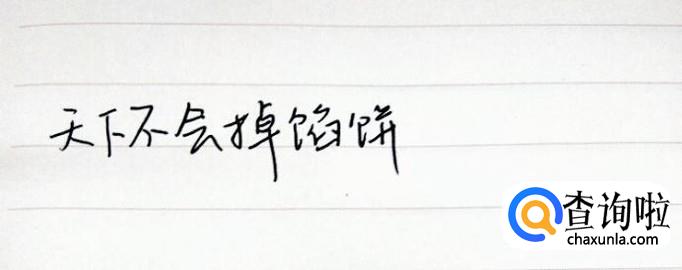 天下不会掉馅饼
查询啦
chaxunla.com